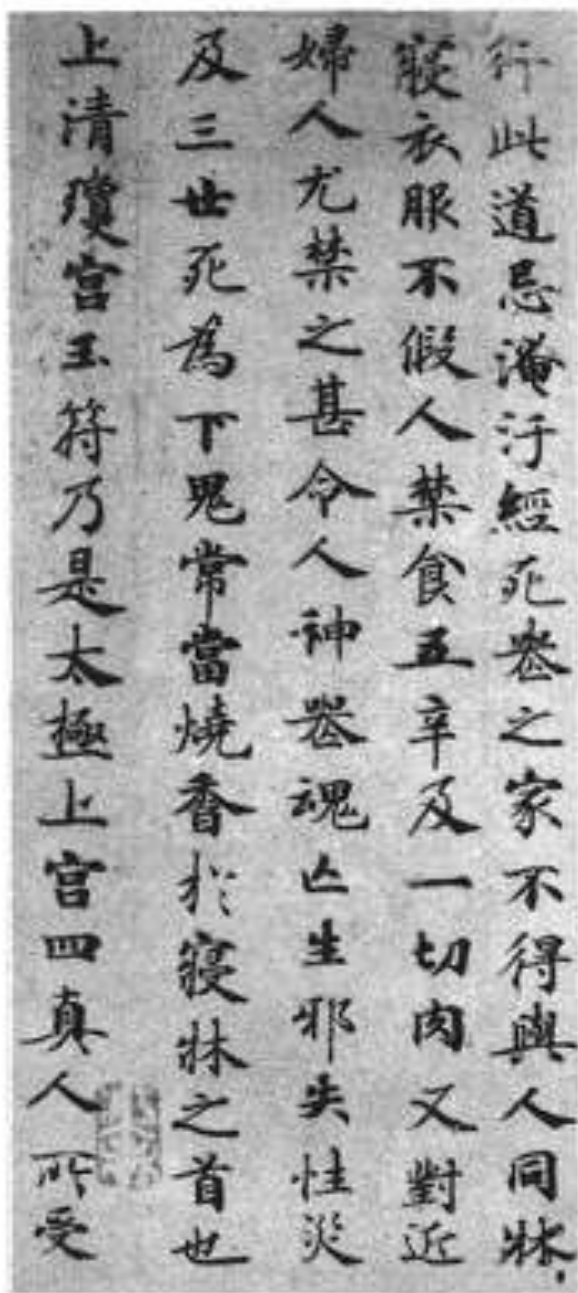 行此道忌淹汙經死丧之家不得與人同牀
寢衣服不假人禁食五辛及一切肉又對近
婦人尤禁之甚令人神丧魂亡生邪失性災
及三世死為下鬼常當燒香於寢牀之首也
上清瓊宮玉符乃是太極上宮四真人所受